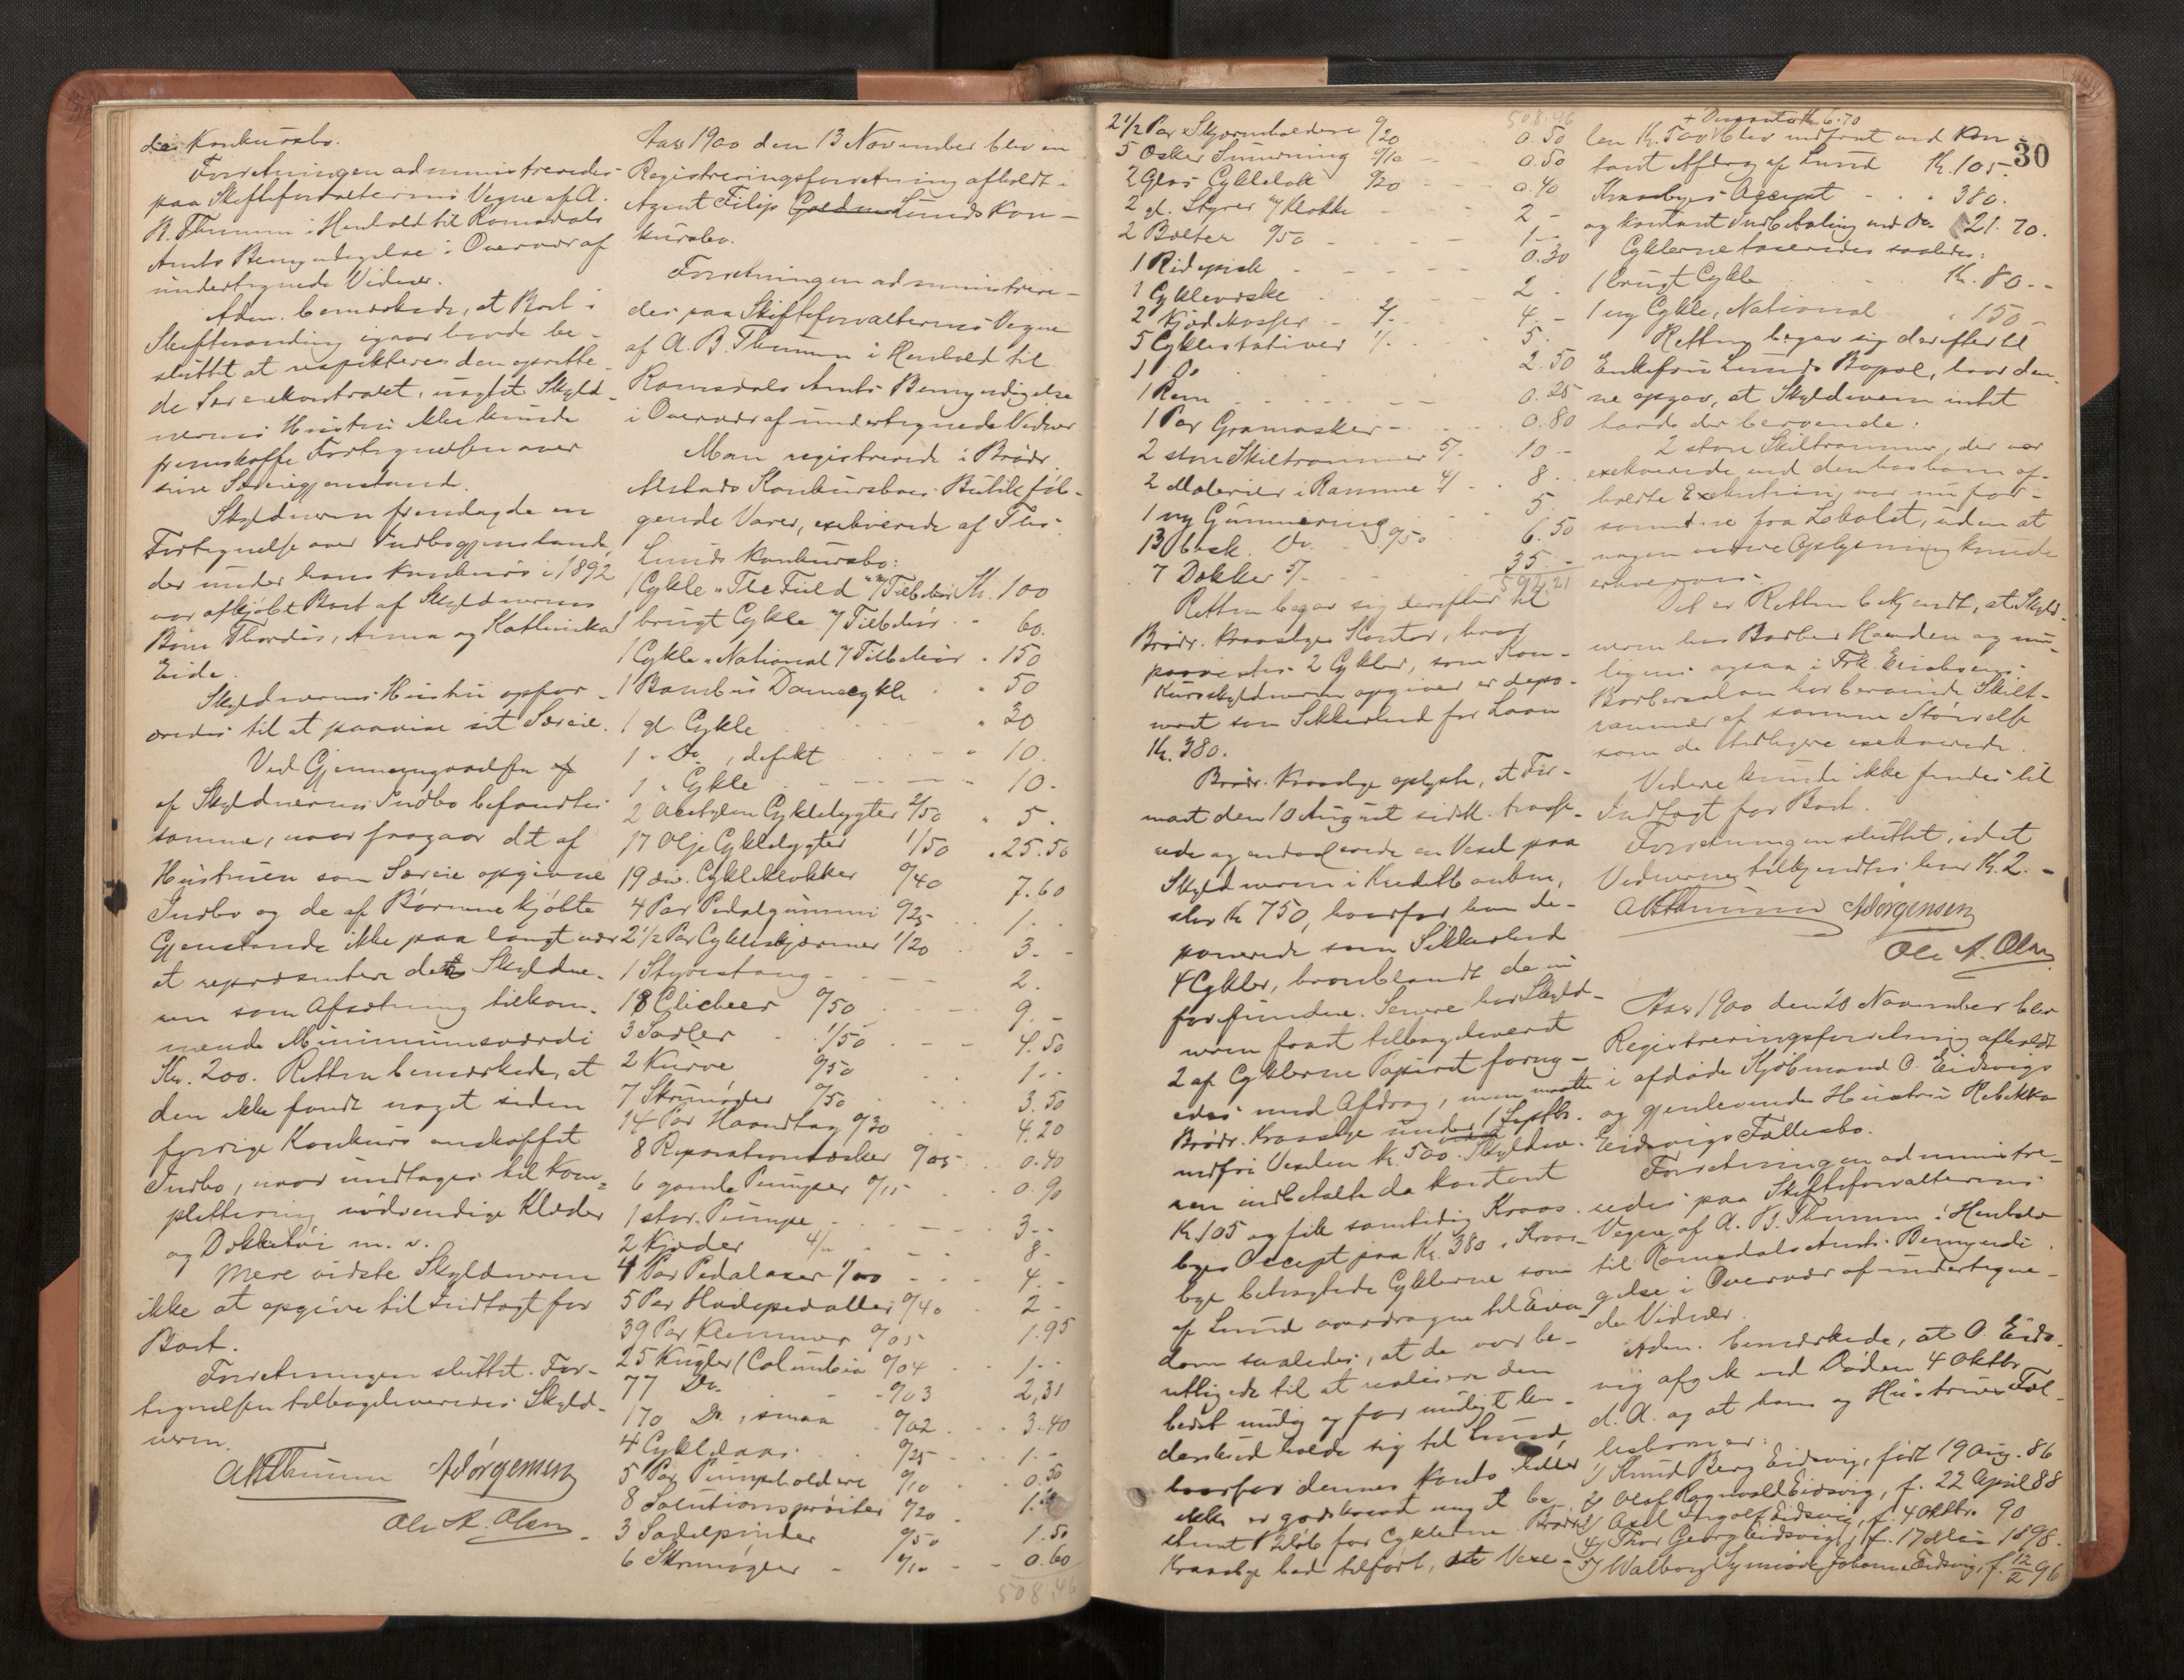 des Konkursbo.
Forretningen administreredes
paa Skifteforvalterens Vegne af A.
B. Thumm i Henhold til Romsdals
Amts Bemyndigelse i Overvær af
undertegnede Vidner.
Adm. bemærkede, at Boet i
Skiftesamling igaar havde be-
sluttet at respektere den oprette-
de Særeiekontrakt, uagtet Skyld-
nerens Hustru ikke kunde
fremskaffe Fortegnelsen over
sine Særeiegjenstande.
Skyldneren fremlagde en
Fortegnelse over Indbogjenstande,
der under hans Konkurs i 1892
var afkjøbt Boet af Skyldnerens
Børn Thordis, Anna og Kathinka
Eide.
Skyldnerens Hustru opfor-
dredes til at paavise sit Særeie.
Ved Gjennemgaaelsen af
af Skyldnerens Indbo befandtes
samme, naar fragaar det af
Hustruen som Særeie opgivne
Indbo og de af Børnene kjøbte
Gjenstande ikke paa langt nær
at repræsentere det Skyldne-
ren som Afsætning tilkom-
mende Minimumsværdi
Kr. 200. Retten bemærkede, at
den ikke fandt noget siden
forrige Konkurs anskaffet
Indbo, naar undtages til Kom-
plettering nødvendige Klæder
og Dækketøi m. v.
Mere vidste Skyldneren
ikke at opgive til Indtægt for
Boet.
Forretningen sluttet. For-
tegnelsen tilbageleveredes Skyld-
neren.
ABThumm AJørgensen
Ole A. Olsen
Aar 1900 den 13 November blev en
Registreringsforretning afholdt i
Agent Filip Lunds Kon-
kursbo.
Forretningen administrere-
des paa Skifteforvalterens Vegne
af A. B. Thumm i Henhold til
Romsdals Amts Bemyndigelse
i Overvær af undertegnede Vidner
Man registrerede i Brødr.
Alstads Konkursboes Butik føl-
gende Varer, exekverede af
Lunds Konkursbo:
1 Cykle "The Field" m/Tilbehør Kr. 100
1 brugt Cykle m/Tilbehør " 60.
1 Cykle "National" m/Tilbehør " 150
1 Bambus Damecykle " 50
1 gl. Cykle " 30
1 " Do, defekt " 10.
1 " Cykle " 10.
2 Acetylen Cyklelygter 2/50 " 5.
17 Olje Cyklelygter 1/50 " 25.50
19 div. Cykleklokker 0/40 7.60
4 Par Pedalgummi 0/25 1. -
2 1/2 Par Cykleskjærmer 1/20 3. -
1 Styrestang 2.
18 Clicheer 0/50 9. -
3 Sadler 1/50 4.50
2 Kurve 0/50 1. -
7 Skrunøgler 0/50 3.50
14 Par Haandtag 0/30 4.20
8 Reparationsæsker 0/05 0.40
6 gamle Pumper 0/15 0.90
1 stor Pumpe 3 -
2 Kjæder 4/- 8 -
4 Par Pedalaxer 1/00 4. -
5 Par Hædepedaller 0/40 2 -
39 Par Klemmer 0/05 1.95
25 Kugler (Columbia 0/04 1. -
77 Do. 0/03 2,31
170 Do., smaa 0/02 3.40
4 Cyklelaas 0/25 1. -
5 Par Pumpeholdere 0/10 0.50
8 Solutionsprøiter 0/20 1.60
3 Sadelpinder 0/50 1.50
6 Skrunøgler 0/10 0.60
508,46
30
508.46
2 1/2 Par Skjærmholdere 0/20 0.50
5 Æsker Smurning 0/10 0.50
2 Glas Cyklelak 0/20 0.40
2 gl. Styrer m/Klokke 2 -
2 Bælter 0/50 1. -
1 Ridepisk 0.30
1 Cyklevæske 2 -
2 Kjædekasser 2/- 4. -
5 Cyklestativer 1/- 5.
1 Do 2.50
1 Rem 0.25
1 Par Gramasker 0.80
2 store Skiltrammer 5/- 10. -
2 Malerier i Ramme 4/ 8.
1 ny Gummiring 5.
13 brugt. Do. 0/50 6.50
7 Dækker 5/- 35. -
592.21
Retten begav sig derefter til
Brødr. Kraasbyes Kontor, hvor
paavistes 2 Cykler, som Kon-
kursskyldneren opgiver er depo-
neret som Sikkerhed for Laan
Kr. 380.
Brødr. Kraasbye oplyste, at Fir-
maet den 10 August sidstl. trasse-
rede og endosserede en Vexel paa
Skyldneren i Kreditbanken,
stor Kr 750, hvorfor han de-
ponerede som Sikkerhed
4 Cykler, hvoriblandt de nu
forefundne. Senere har Skyld-
neren faaet tilbageleveret
2 af Cyklerne. Papiret forny-
edes med Afdrag, men maatte
Brødr. Kraasbye under 1 Septbr.
indfri Vexlen Kr. 500. Skyldne-
ren indbetalte da kontant
Kr. 105 og fik samtidig Kraas-
byes Accept paa Kr. 380. Kraas-
bye betragtede Cyklerne som
af Lund overdragne til Eien-
dom saaledes, at de var be-
rettiget til at realisere dem
bedst mulig og for muligt Un-
derskud holde sig til Lund,
hvorfor dennes Konto heller
ikke er godskrevet noget be-
stemt Beløb for Cyklerne. Brødr.
Kraasbye bad tilført, at Vexe-
+ Diskonto Kr. 6.70
len Kr. 500 blev indfriet ved kon-
tant Afdrag af Lund Kr. 105 -
Kraasbyes Accept " 380.
og kontant Indbetaling ved do. 21.70.
Cyklerne taxeredes saaledes:
1 brugt Cykle Kr. 80. -
1 ny Cykle, National " 150 -
Retten begav sig derefter til
Enkefru Lunds Bopæl, hvor den-
ne opgav, at Skyldneren intet
havde der beroende:
2 store Skiltrammer, der var
exekverede ved den hos ham af-
holdte Exekution var nu for-
svundne fra Lokalet, uden at
nogen videre Oplysning kunde
erhverves.
Det er Retten bekjendt, at Skyld-
neren hos Barber Hamden og mu-
ligens ogsaa i Frk. Eriksens
Barbersalon har beroende Skilt-
rammer af samme Størrelse
som de tidligere exekverede.
Videre kunde ikke findes til
Indtægt for Boet.
Forretningen sluttet, idet
Vidnerne tilkjendtes hver Kr. 2. -
ABThumm AJørgensen
Ole A. Olsen
Aar 1900 den 20 November blev
Registreringsforretning afholdt
i afdøde Kjøbmand O. Eidsvigs
og gjenlevende Hustru Rebekka
Eidsvigs Fællesbo.
Forretningen administre-
redes paa Skifteforvalterens
Vegne af A. B. Thumm i Henhold
til Romsdals Amts Bemyndi-
gelse i Overvær af undertegne-
de Vidner.
Adm. bemærkede, at O. Eids-
vig afgik ved Døden 4 Oktbr
d. A. og at hans og Hustrues Fæl-
lesbørn er:
1) Knud Berg Eidsvig, født 19 Aug. 86
2) Olaf Ragnvald Eidsvig, f. 22 April 88
3) Axel Ingolf Eidsvig, f. 4 Oktbr. 90
4) Thor Georg Eidsvig, f. 17 Mai 1898.
5) Walborg Synnøve Johanne Eidsvig, f. 12/2 96